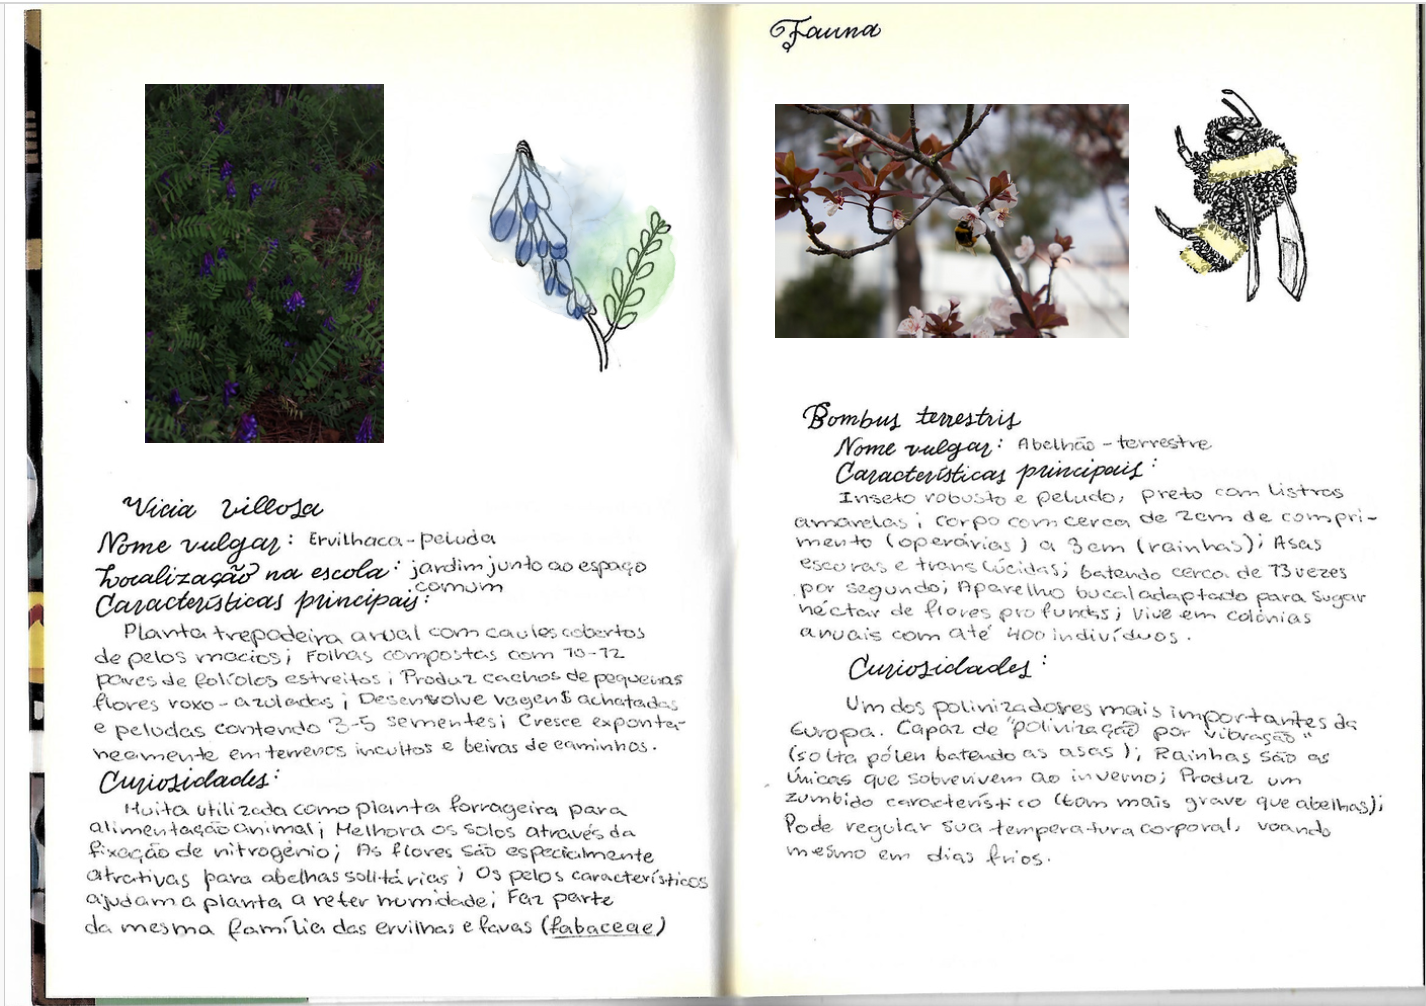 Vicia villosa
Nome vulgar: Ervilhaca-peluda
Localização na escola: jardim junto ao espaço
comum
Características principais:
Planta trepadeira anual com caules cobertos
de pelos macios; Folhas compostas com 10-12
pares de folíolos estreitos; Produz cachos de pequenas
flores roxo-azuladas; Desenvolve vagens achatadas
e peludas contendo 3-5 sementes; Cresce exponta-
neamente em terrenos incultos e beiras de caminhos.
Curiosidades:
Muita utilizada como planta forrageira para
alimentação animal; Melhora os solos através da
fixação de nitrogénio; As flores são especialmente
atrativas para abelhas solitárias; Os pelos característicos
ajudam a planta a reter humidade; Faz parte
da mesma família das ervilhas e favas (fabaceae)
Fauna
Bombus terrestris
Nome vulgar: Abelhão-terrestre
Características principais:
Inseto robusto e peludo, preto com listras
amarelas; corpo com cerca de 2cm de compri-
mento (operárias) a 3cm (rainhas); Asas
escuras e translúcidas; batendo cerca de 73 vezes
por segundo; Aparelho bucal adaptado para sugar
néctar de flores profundas; Vive em colónias
anuais com até 400 indivíduos.
Curiosidades:
Um dos polinizadores mais importantes da
Europa. Capaz de "polinização por vibração"
(solta pólen batendo as asas); Rainhas são as
únicas que sobrevivem ao inverno; Produz um
zumbido característico (tom mais grave que abelhas);
Pode regular sua temperatura corporal, voando
mesmo em dias frios.